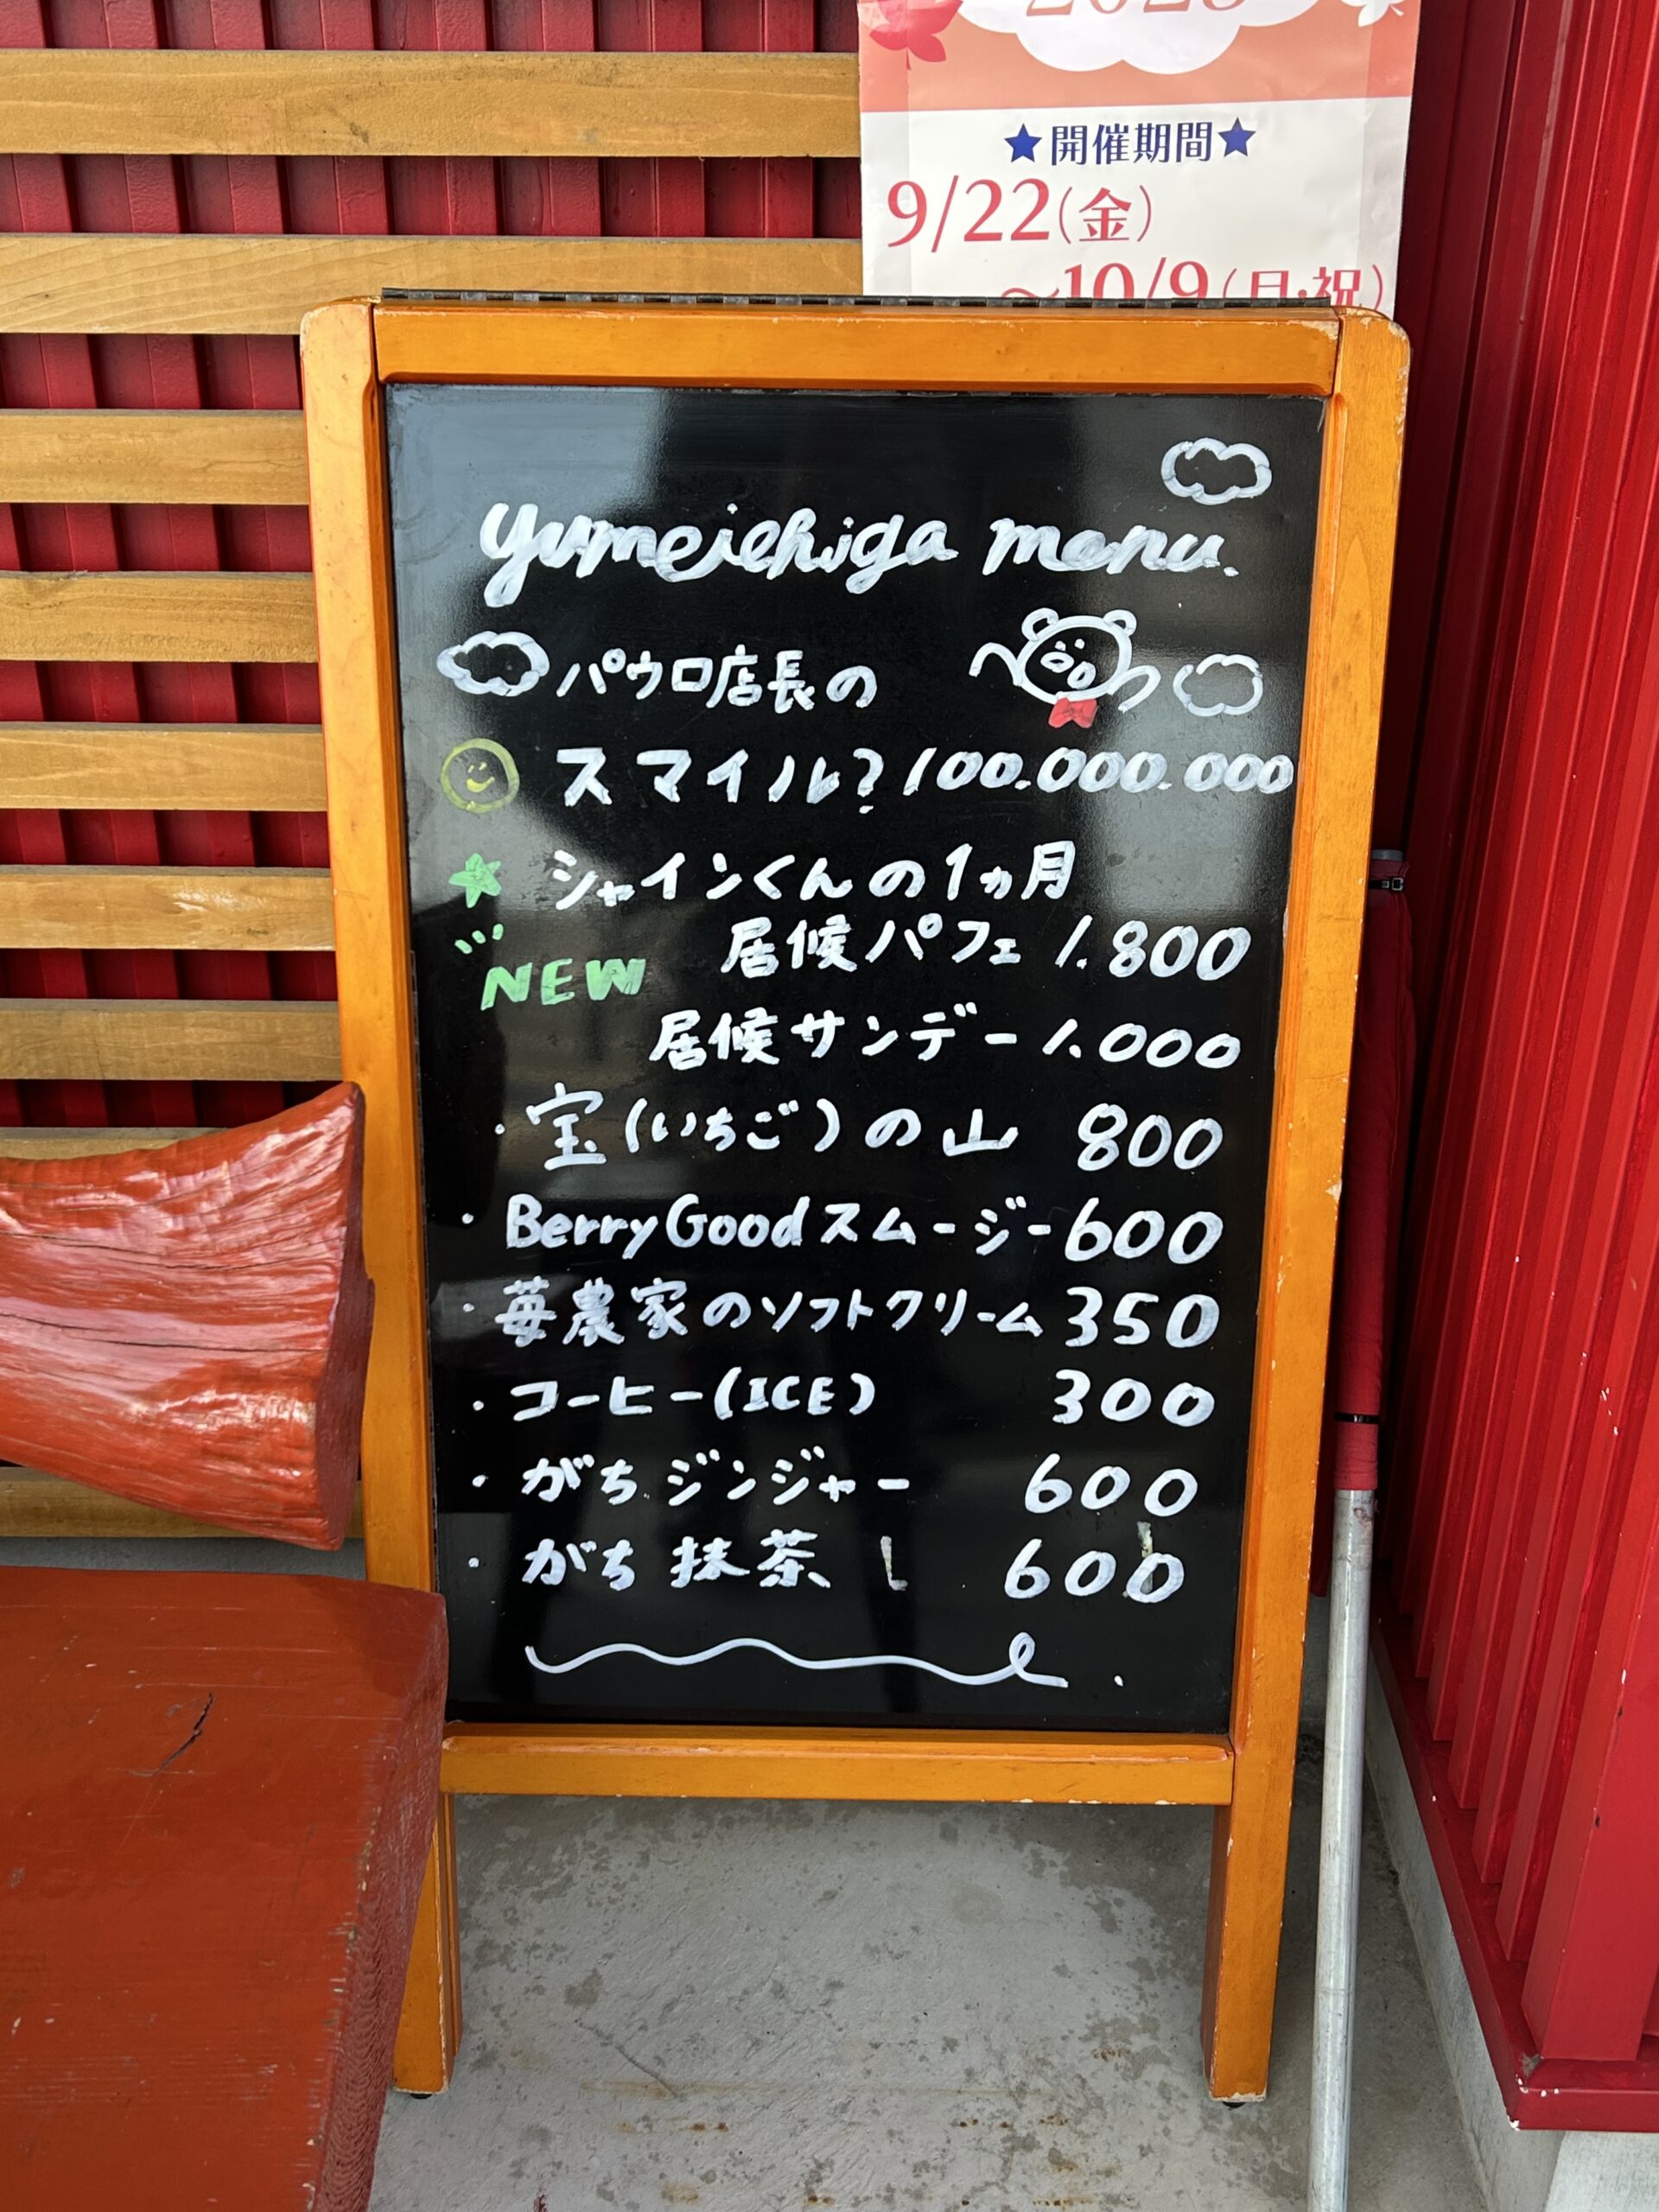 2023
★開催期間★
9/22(金)
〜10/9(月・祝)
yumeichigo menu.
パウロ店長の
スマイル? 100.000.000
シャインくんの1ヵ月
居候パフェ 1.800
NEW
居候サンデー 1.000
・宝(いちご)の山 800
・Berry Goodスムージー 600
・苺農家のソフトクリーム 350
・コーヒー(ICE) 300
・がちジンジャー 600
・がち抹茶 600